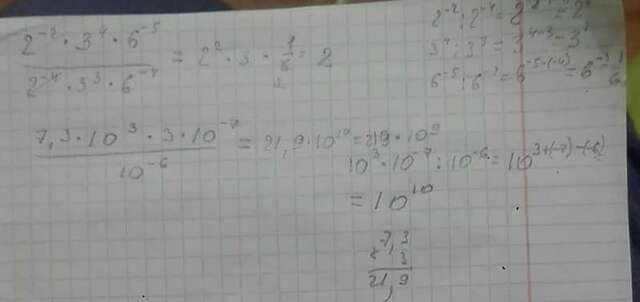 2⁻² · 3⁴ · 6⁻⁵ / 2⁻⁴ · 3³ · 6⁻⁴ = 2² · 3 · 1/6 = 2
2⁻² : 2⁻⁴ = 2
3⁴ : 3³ = 3⁴⁻³ = 3¹
6⁻⁵ : 6⁻⁴ = 6⁻⁵⁻⁽⁻⁴⁾ = 6⁻¹ 1/6
7,3 · 10³ · 3 · 10⁻⁷ / 10⁻⁶ = 21,9 · 10¹⁰ = 219 · 10⁹
10³ · 10⁻⁷ : 10⁻⁶ = 10³⁺⁽⁻⁷⁾⁻⁽⁻⁶⁾
= 10¹⁰
7,3
3
21,9